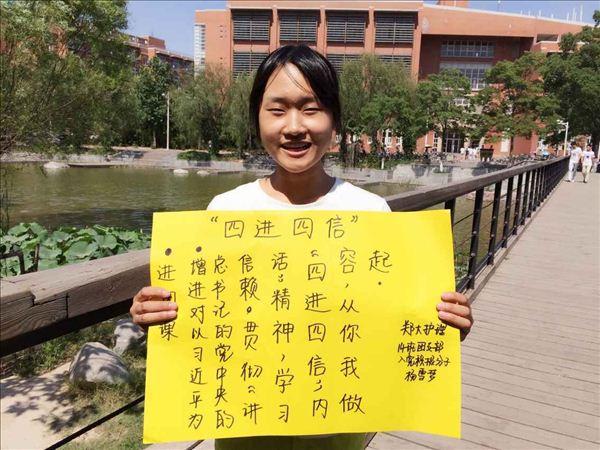 “四进四信”
·进 课
·增进对以习近平为
总书记的党中央的
信赖。贯彻“讲
话”精神，学习
“四进四信”内
容，从你我做
起．
郑大护理
团支部
入党积极分子
杨雪梦